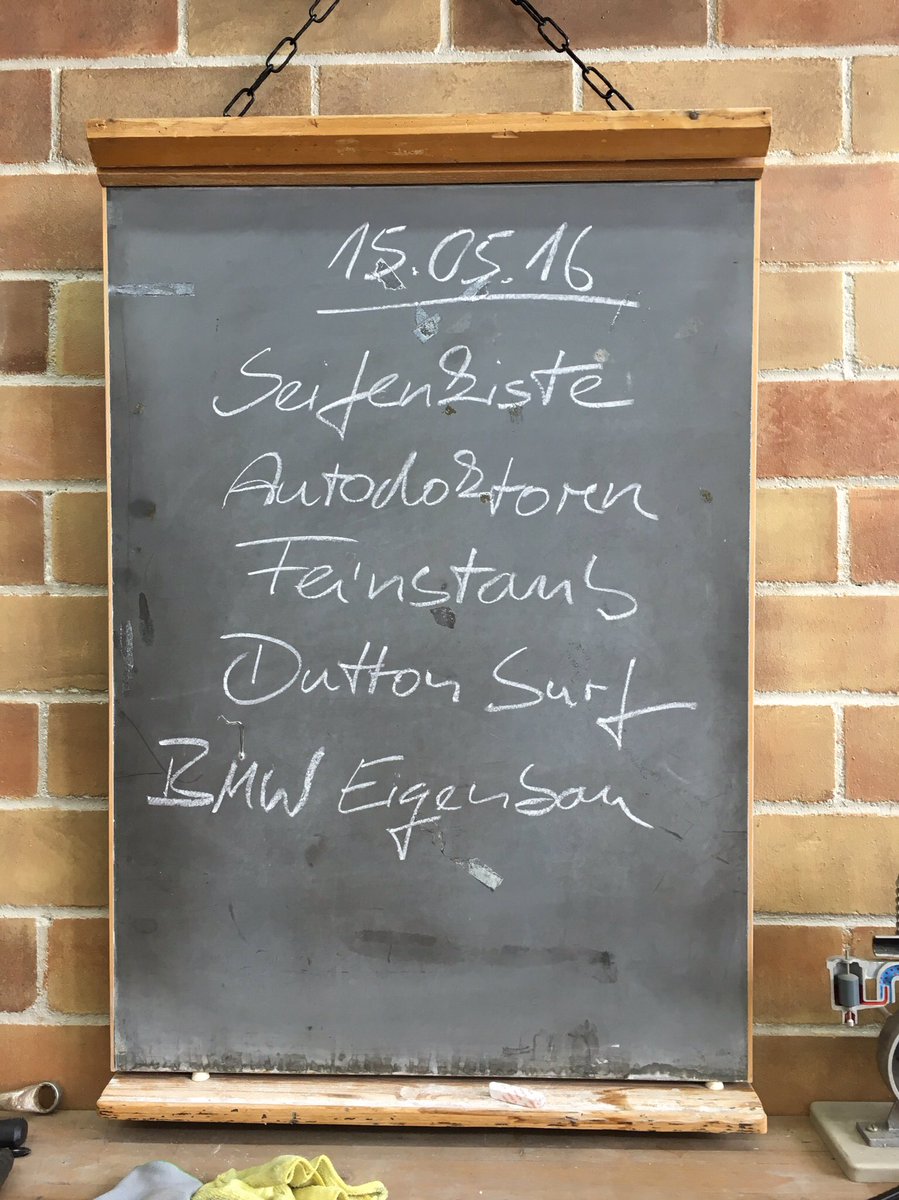 15.05.16
Seifenkiste
Autodoktoren
Feinstaub
Dutton Surf
BMW Eigenbau